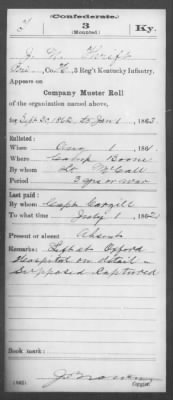 (Confederate.)
T 3 Ky.
(Mounted.)
J. W. Thrift
Pvt., Co. H, 3 Reg't Kentucky Infantry.
Appears on
Company Muster Roll
of the organization named above,
for Sept 30, 1862 to Jan 1, 1863.
Enlisted:
When Aug 1, 1861.
Where Camp Boone
By whom Lt McCall
Period 3 yrs or war
Last paid:
By whom Capt Cargill
To what time July 1, 1862
Present or absent Absent
Remarks: Left at Oxford
Hospital on detail -
Supposed Captured
Book mark:
(642)
Copyist.